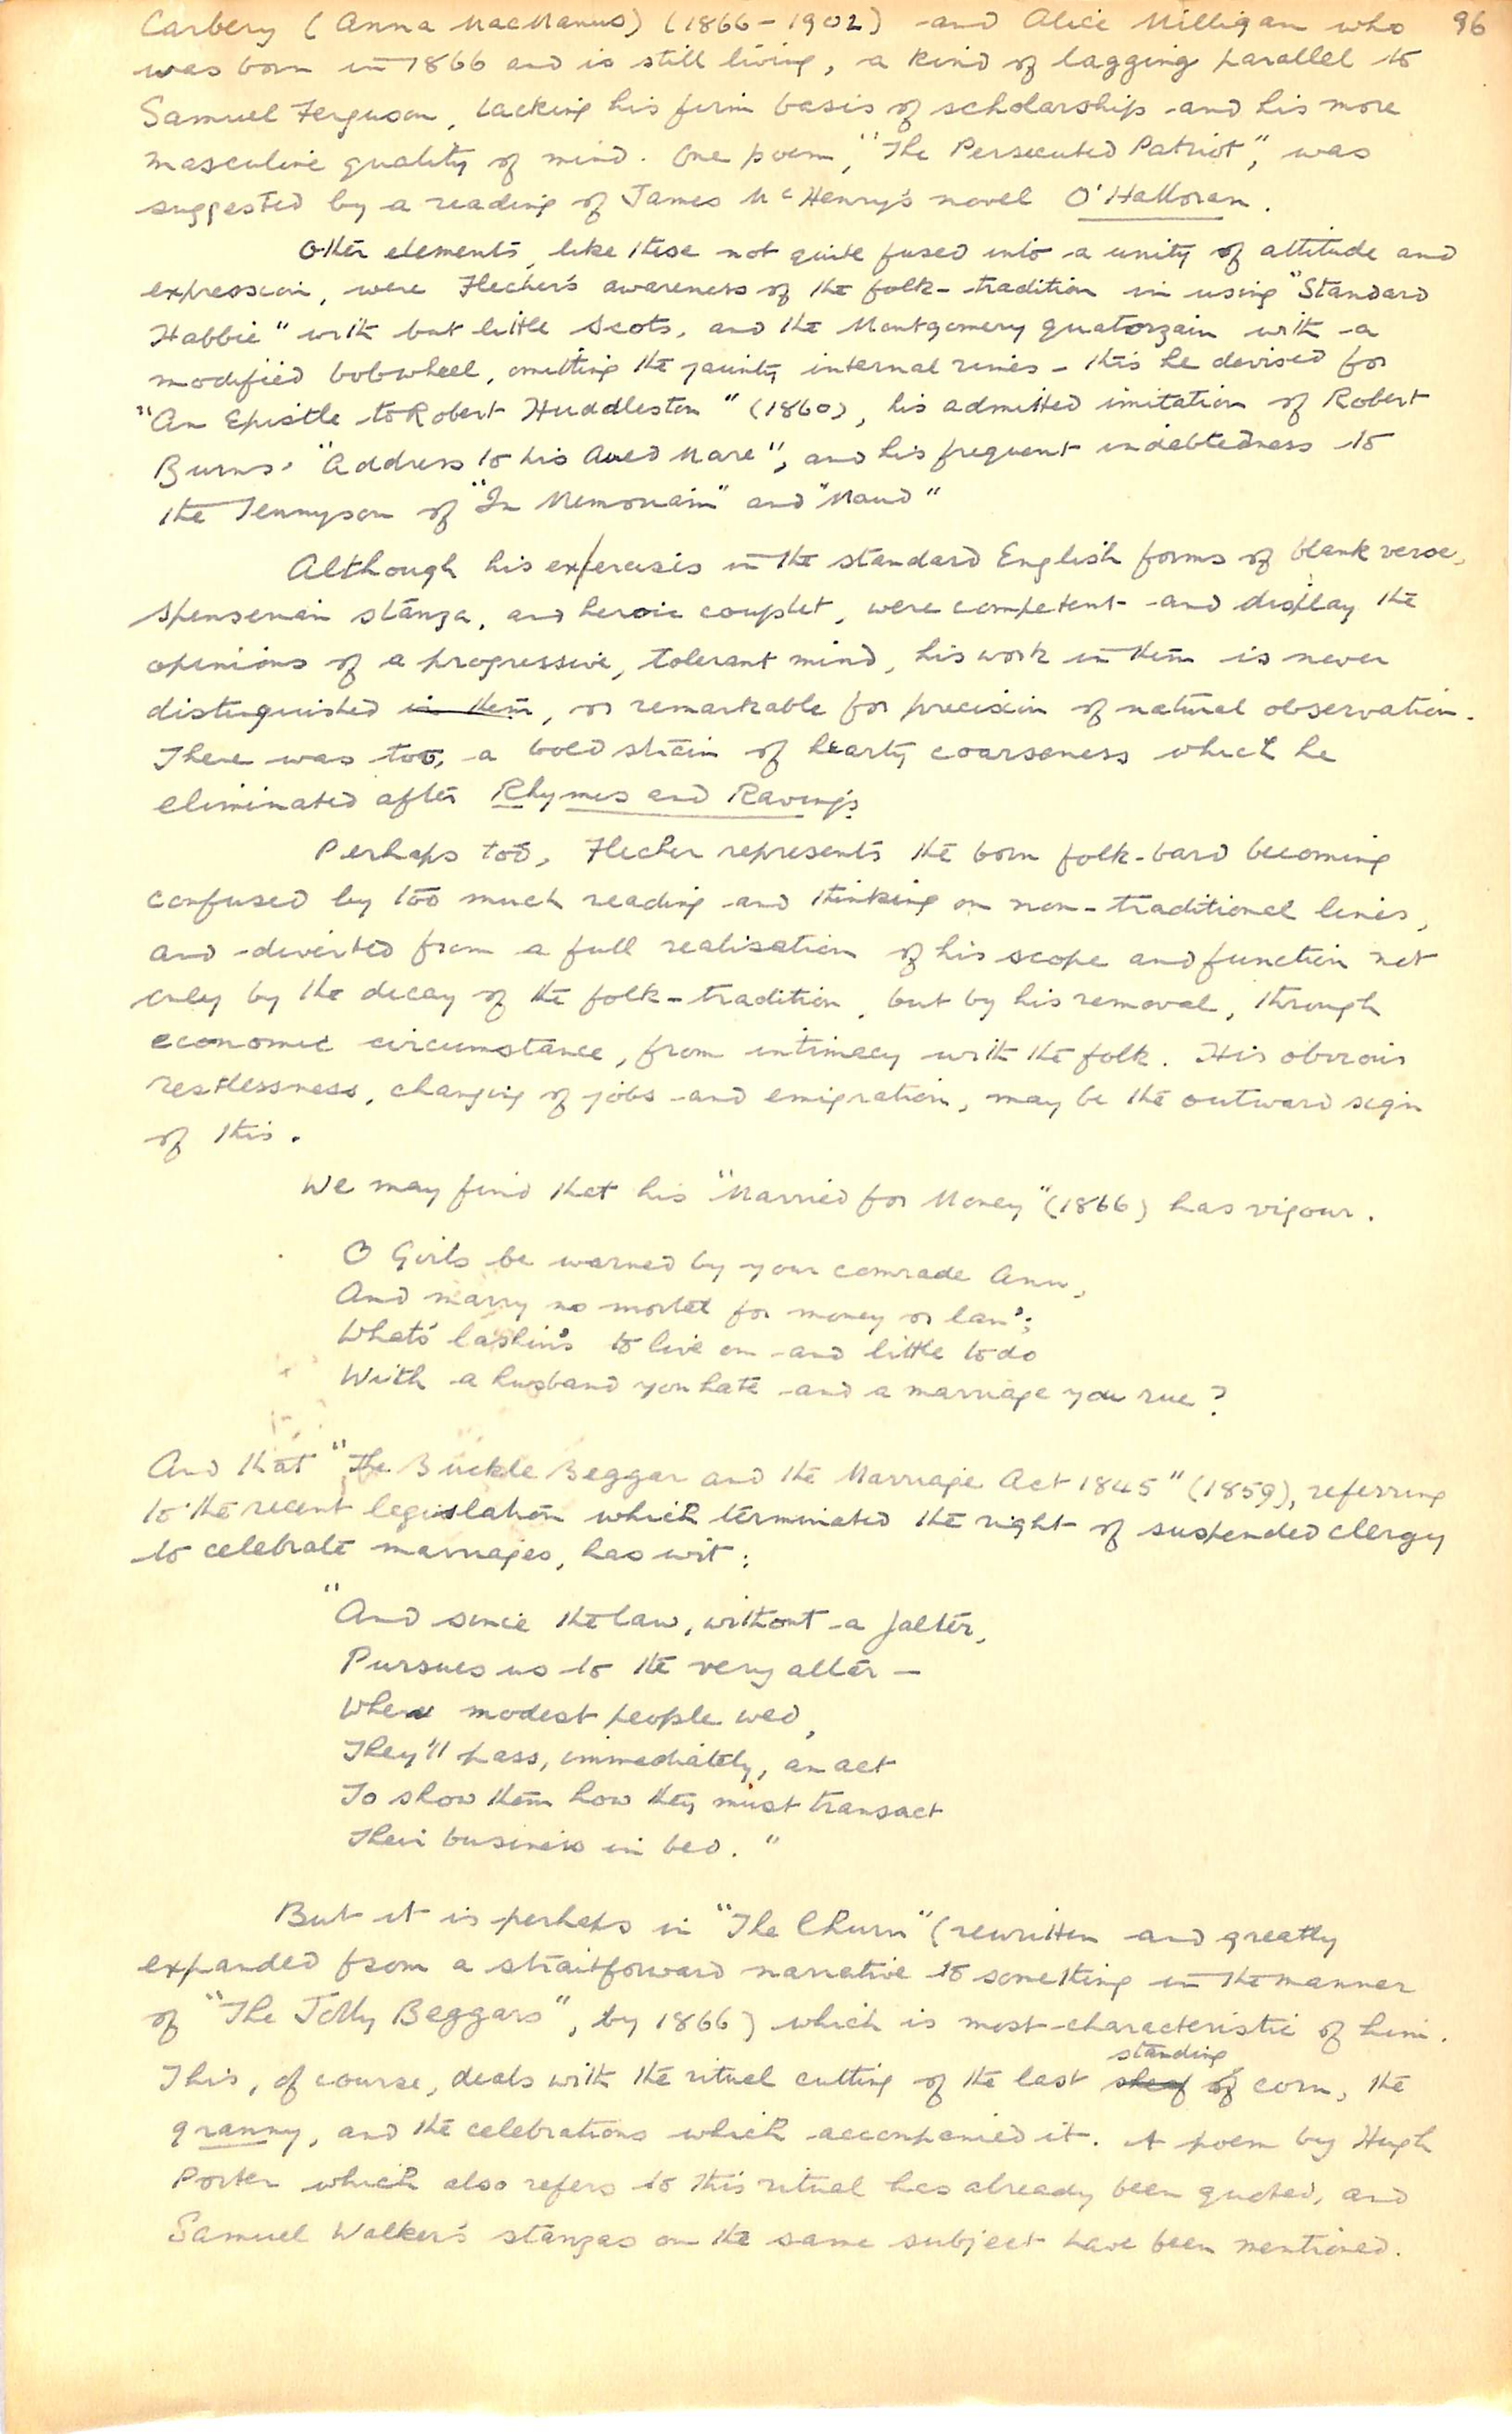 Carbery (Anna MacManus) (1866-1902) and Alice Milligan who 96
was born in 1866 and is still living, a kind of lagging parallel to
Samuel Ferguson, lacking his firm basis of scholarship and his more
masculine quality of mind. One poem, "The Persecuted Patriot", was
suggested by a reading of James McHenry's novel O'Halloran.
Other elements, like these not quite fused into a unity of attitude and
expression, were Flecher's awareness of the folk-tradition in using "Standard
Habbie" with but little Scots, and the Montgomery quatorzain with a
modified bobwheel, omitting the jaunty internal rimes - this he devised for
"An Epistle to Robert Huddleston" (1860), his admitted imitation of Robert
Burns' "Address to his Aued Mare", and his frequent indebtedness to
the Tennyson of "In Memoriam" and "Maud"
Although his exercises in the standard English forms of blank verse,
Spenserian stanza, and heroic couplet, were competent and display the
opinions of a progressive, tolerant mind, his work in them is never
distinguished in them, or remarkable for precision of natural observation.
There was too, a bold strain of hearty coarseness which he
eliminated after Rhymes and Ravings.
Perhaps too, Flecher represents the born folk-bard becoming
confused by too much reading and thinking on non-traditional lines,
and diverted from a full realisation of his scope and function not
only by the decay of the folk-tradition, but by his removal, through
economic circumstance, from intimacy with the folk. His obvious
restlessness, changing of jobs and emigration, may be the outward sign
of this.
We may find that his "Married for Money" (1866) has vigour.
O Girls be warned by your comrade Ann,
And marry no mortal for money or lan';
What's lashins to live on and little to do
With a husband you hate and a marriage you rue?
And that "The Buckle Beggar and the Marriage Act 1845" (1859), referring
to the recent legislation which terminated the right of suspended clergy
to celebrate marriages, has wit:
"And since the law, without a falter,
Pursues us to the very alter -
Where modest people wed,
They'll pass, immediately, an act
To show them how they must transact
Their business in bed."
But it is perhaps in "The Churn" (rewritten and greatly
expanded from a straitforward narrative to something in the manner
of "The Jolly Beggars", by 1866) which is most characteristic of him.
standing
This, of course, deals with the ritual cutting of the last sheaf of corn, the
granny, and the celebrations which accompanied it. A poem by Hugh
Porter which also refers to this ritual has already been quoted, and
Samuel Walker's stanzas on the same subject have been mentioned.